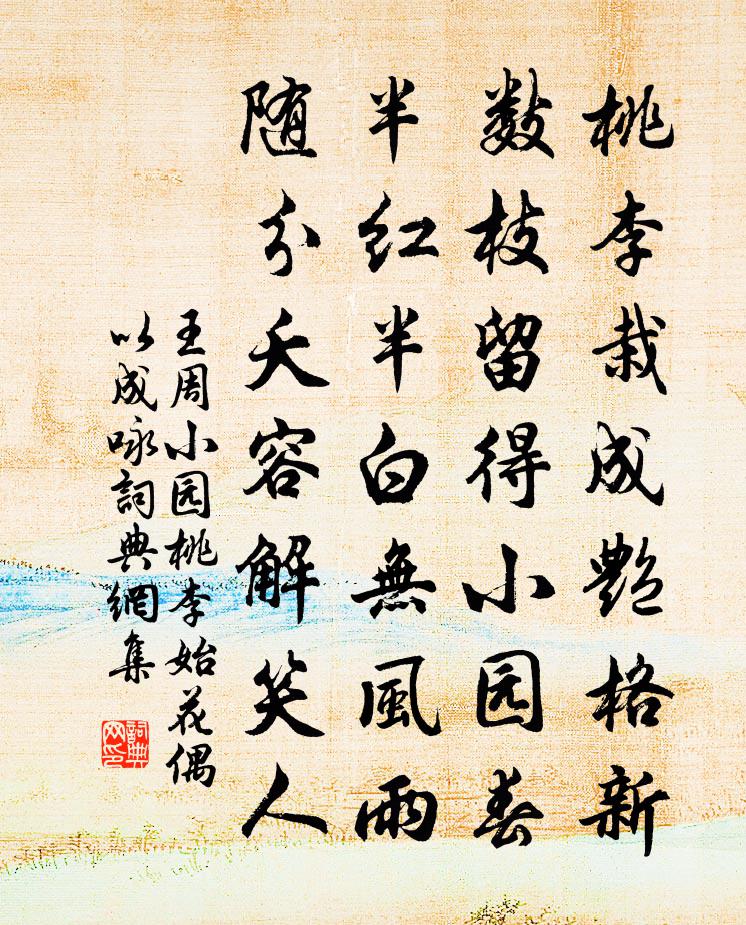 桃李栽成艷格新
数枝留得小园春
半红半白無風雨
随分夭容解笑人
王周小园桃李始花偶
以成咏詞典網集
詞典网印